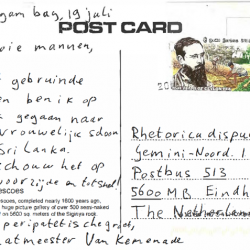 gam bay, 19 juli
POST CARD
oie mannen,
gebruinde
en ben ik op
gegaan naar
vrouwelijk schoon
Sri Lanka.
schouw het op
voorzijde en tot snel!
escoes
escoes, completed nearly 1600 years ago,
huge picture gallery of over 500 semi-naked
on 5600 sq. meters of the Sigiriya rock.
peripatetische groet,
atmeester Van Kemenade
Rhetorica dispu
Gemini-Noord. 1
Postbus 513
5600 MB Eindh
The Netherlan